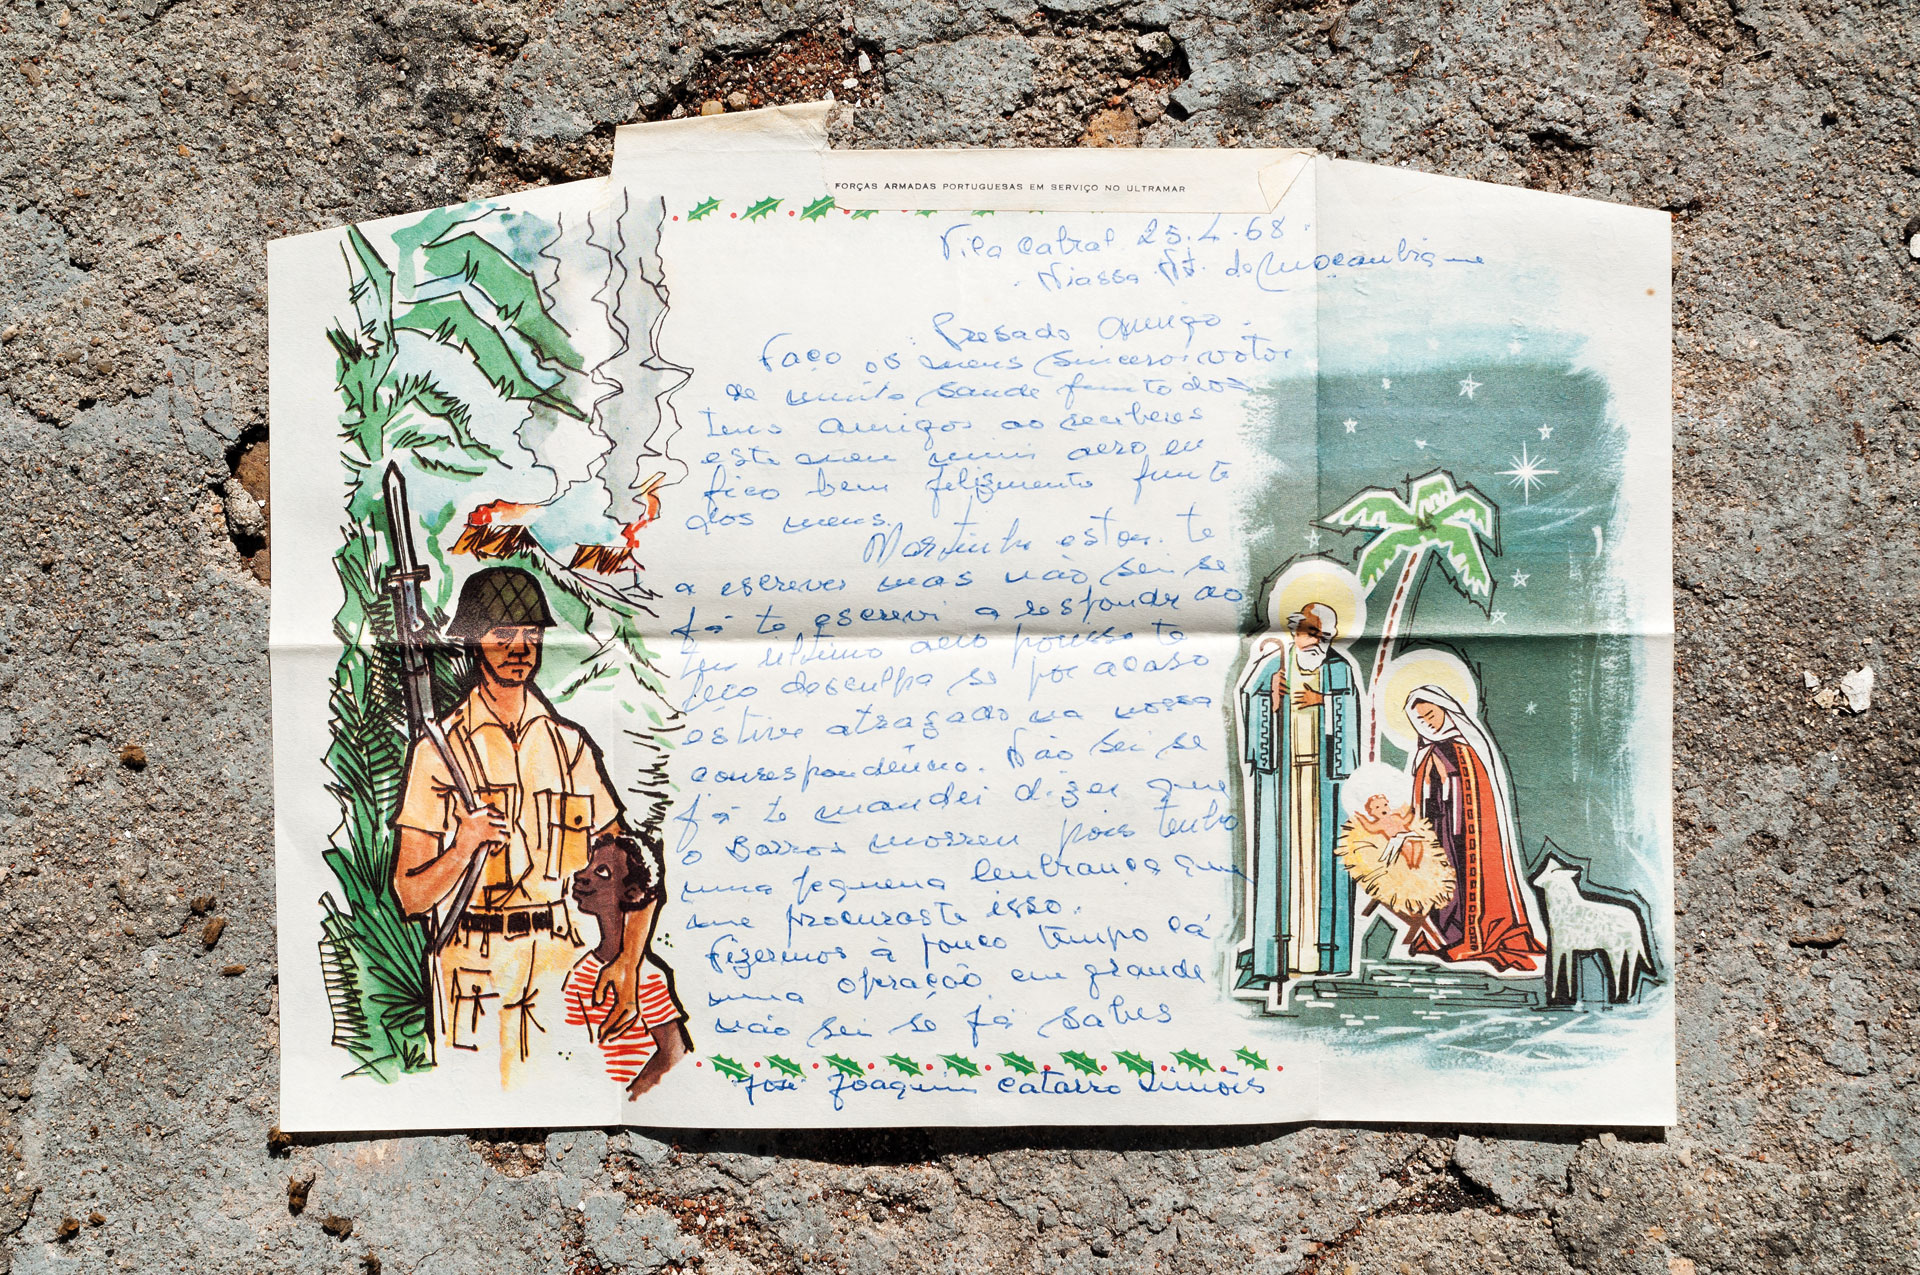 FORÇAS ARMADAS PORTUGUESAS EM SERVIÇO NO ULTRAMAR
Vila Cabral 25.4.68.
Niassa Nt. de Moçambique
Presado Amigo.
Faço os meus sinceros votos
de muita saude junto dos
teus amigos ao receberes
este meu aero eu
fico bem felizmente junto
dos meus.
Martinho estou te
a escrever mas não sei se
já te escrevi a responder ao
teu último aero pouso te
peço desculpa se por acaso
estive atrazado na nossa
correspondência. Não sei se
já te mandei dizer que
o Barros morreu pois tenho
uma pequena lembrança que
me procuraste isso.
Fizemos à pouco tempo cá
uma opração em grande
não sei se já sabes
José Joaquim Catarro Simões